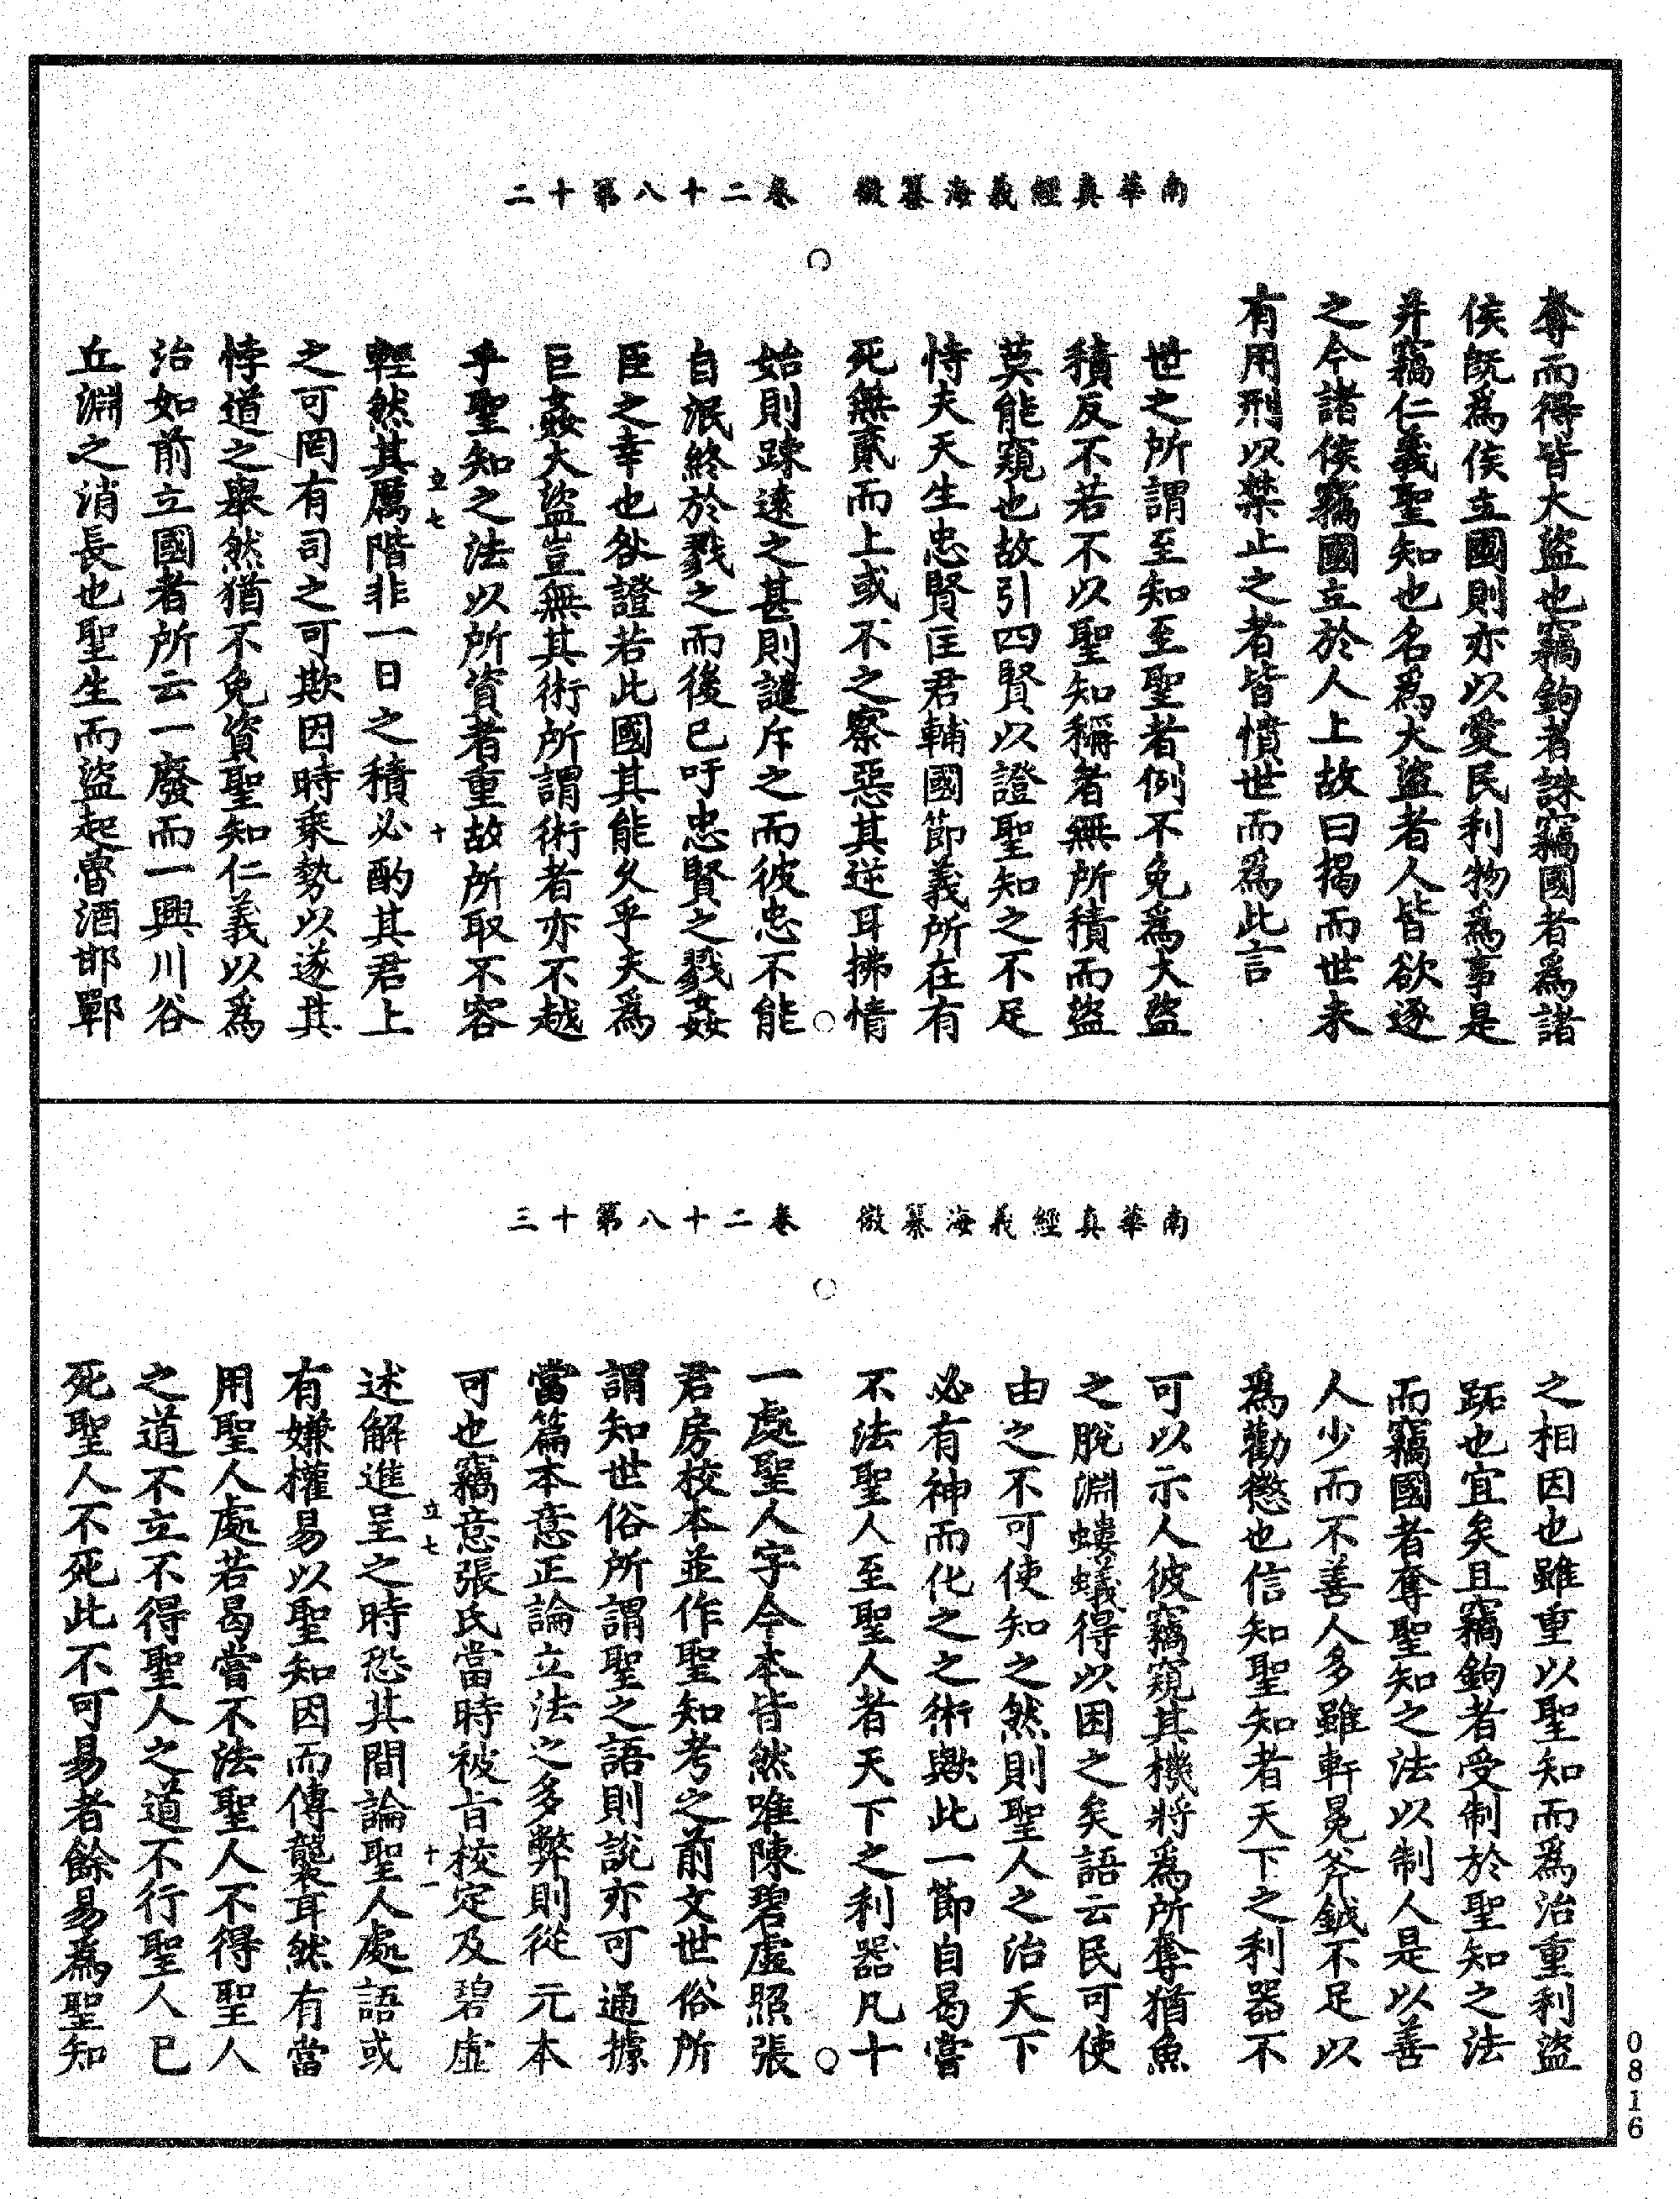 南華真經義海纂微　卷二十八第十二
奪而得皆大盜也竊鉤者誅竊國者爲諸
侯旣爲侯立國則亦以愛民利物爲事是
并竊仁義聖知也名爲大盜者人皆欲逐
之今諸侯竊國立於人上故曰揭而世未
有用刑以禁止之者皆憤世而爲此言
世之所謂至知至聖者例不免爲大盜
積反不若不以聖知稱者無所積而盜
莫能窺也故引四賢以證聖知之不足
恃夫天生忠賢匡君輔國節義所在有
死無貳而上或不之察惡其逆耳拂情
始則踈遠之甚則譴斥之而彼忠不能
自泯終於戮之而後已吁忠賢之戮姦
臣之幸也㕁證若此國其能久乎夫爲
巨姦大盜豈無其術所謂術者亦不越
乎聖知之法以所資者重故所取不容
立七　十
輕然其厲階非一日之積必酌其君上
之可罔有司之可欺因時乘勢以遂其
悖道之舉然猶不免資聖知仁義以爲
治如前立國者所云一廢而一興川谷
丘淵之消長也聖生而盜起魯酒邯鄲
南華真經義海纂微　卷二十八第十三
之相因也雖重以聖知而爲治重利盜
跖也宜矣且竊鉤者受制於聖知之法
而竊國者奪聖知之法以制人是以善
人少而不善人多雖軒冕斧鉞不足以
爲勸懲也信知聖知者天下之利器不
可以示人彼竊窺其機將爲所奪猶魚
之脫淵螻蟻得以困之矣語云民可使
由之不可使知之然則聖人之治天下
必有神而化之之術歟此一節自曷嘗
不法聖人至聖人者天下之利器凡十
一處聖人字今本皆然唯陳碧虛照張
君房校本並作聖知考之前文世俗所
謂知世俗所謂聖之語則說亦可通據
當篇本意正論立法之多弊則從元本
可也竊意張氏當時被旨校定及碧虛
立七　十一
述解進呈之時恐其間論聖人處語或
有嫌權易以聖知因而傳襲耳然有當
用聖人處若曷嘗不法聖人不得聖人
之道不立不得聖人之道不行聖人已
死聖人不死此不可易者餘易爲聖知
0816